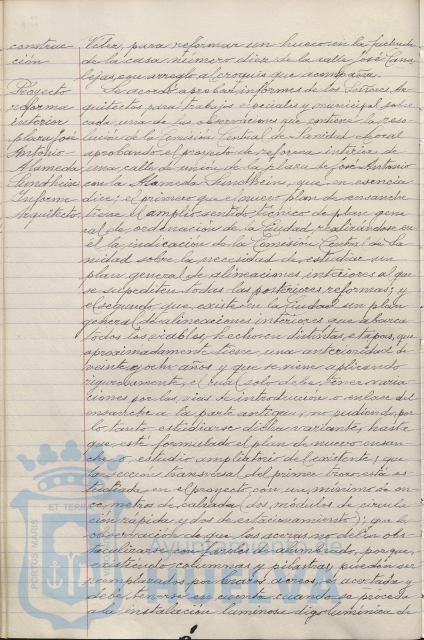 construc-
ción
Proyecto
reforma
interior
plaza José
Antonio
Alameda
Sundheim
Informe
Arquitecto
Velez, para reformar un hueco en la fachada
de la casa número diez de la calle José Cana-
lejas, con arreglo al croquis que acompaña.
Se acordó aprobar informes de los Señores Ar-
quitectos para trabajos especiales y municipal sobre
cada una de las observaciones que contiene la reso-
lución de la Comisión Central de Sanidad Local
aprobando el proyecto de reforma interior de
una calle de unión de la plaza de José Antonio
con la Alameda Sundheim, que en esencia
dice; el primero que el nuevo plan de ensanche
tiene el amplio sentido técnico de plan gene-
ral de ordenación de la Ciudad, realizándose en
él la indicación de la Comisión Central de Sa-
nidad sobre la necesidad de estudiar un
plan general de alineaciones interiores al que
se supediten todas las posteriores reformas; y
el segundo que existe en la Ciudad un plan
general de alineaciones interiores que abarca
todos los viables, hecho en distintas etapas, que
aproximadamente tiene una anterioridad de
veinte y ocho años y que se viene aplicando
rigurosamente, el cual solo debe tener varia-
ciones por las vías de introducción o enlace del
ensanche a la parte antigua, no pudiendo, por
lo tanto estudiarse dicha variante, hasta
que esté formulado el plan de nuevo ensan-
che o estudio ampliatorio del existente; que
la sección transversal del primer trozo, está es-
tudiada en el proyecto con un mínimo de on-
ce metros de calzada (dos módulos de circula-
ción rápida y dos de estacionamiento); que la
observación de que las aceras no deben obs-
taculizarse con farolas de alumbrado, porque,
existiendo columnas y pilastras, pueden ser
reemplazados por brazos aéreos, es acertada y
debe tenerse en cuenta cuando se proceda
a la instalación luminosa
PORTUS MARIS
ET TERRAE
Ayuntamiento de